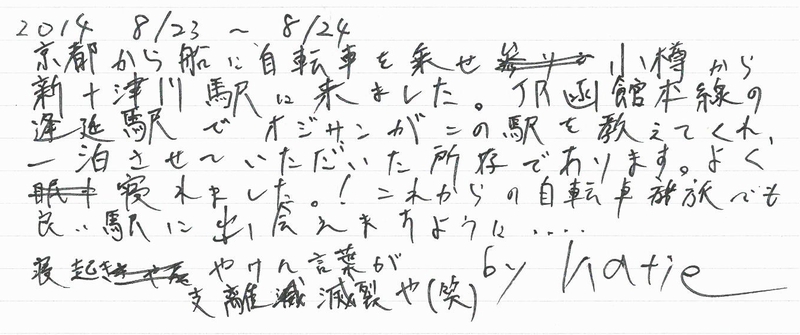 2014 8/23 ~ 8/24
京都から船に自転車を乗せ 小樽から
新十津川駅に来ました。JR函館本線の
滝延駅でオジサンがこの駅を教えてくれ、
一泊させていただいた所存であります。よく、
眠れ寝れました。！これからの自転車旅でも
良い駅に出会えますように....
寝起き やけん言葉が by katie
支離滅裂や(笑)